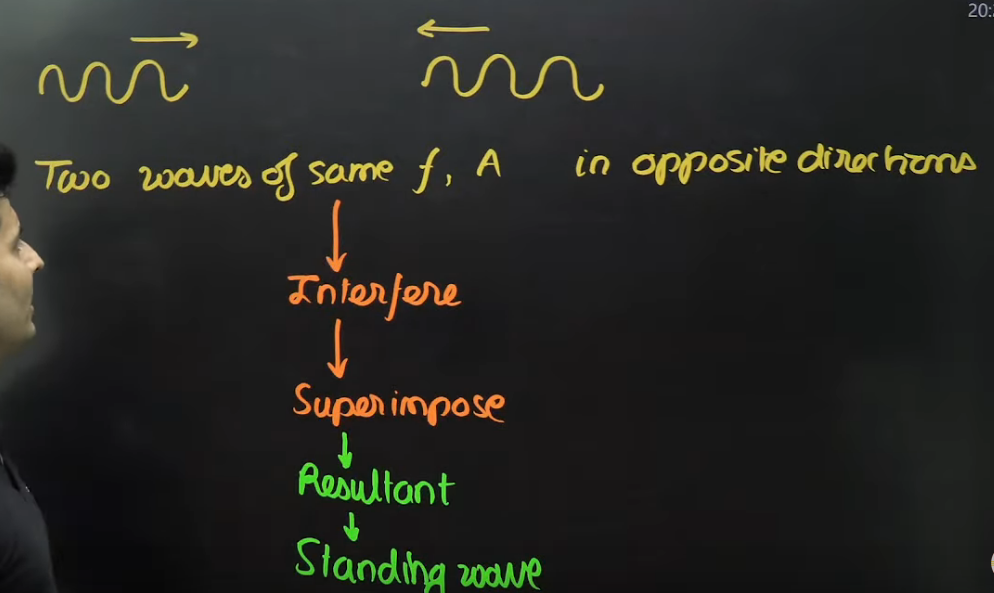 20:
Two waves of same f, A in opposite directions
Interfere
Superimpose
Resultant
Standing wave